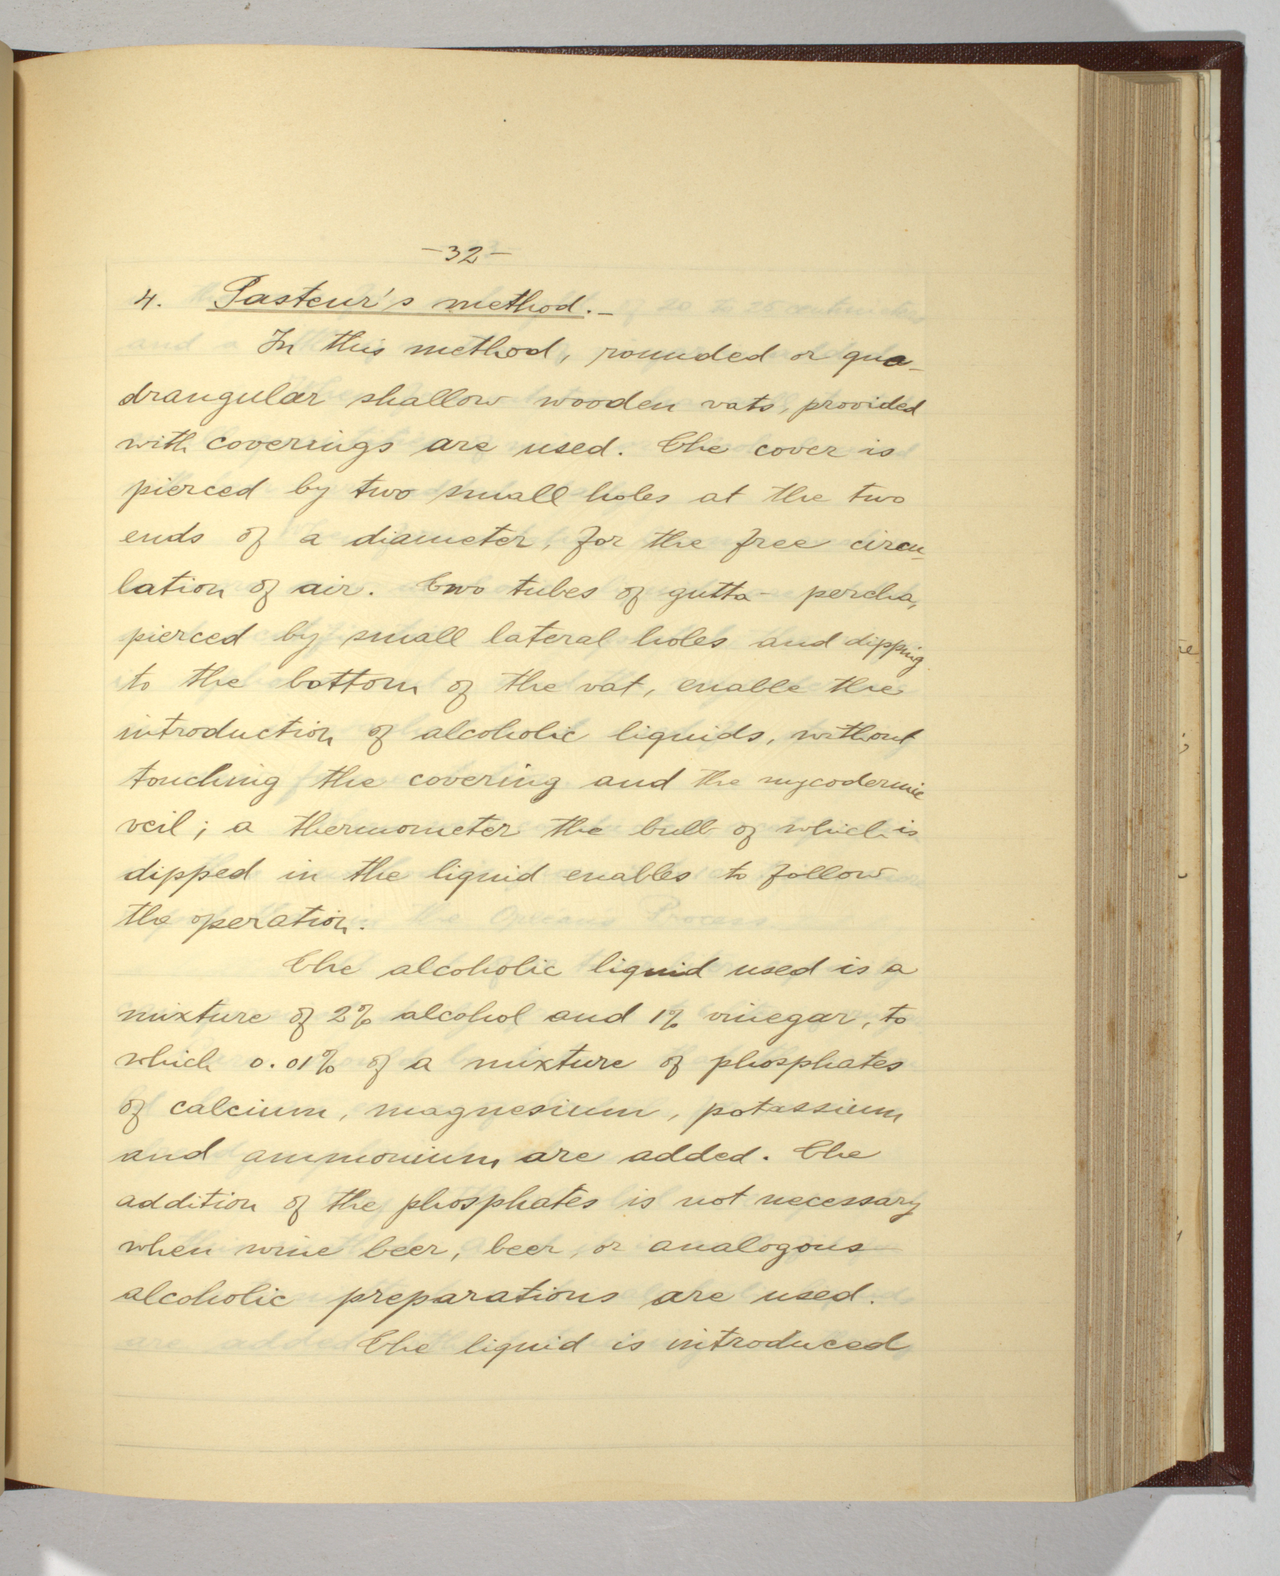 -32-
4. Pasteur's method.-
In this method, rounded or qua-
drangular shallow wooden vats, provided
with coverings are used. The cover is
pierced by two small holes at the two
ends of a diameter, for the free circu-
lation of air. Two tubes of gutta-percha,
pierced by small lateral holes and dipping
to the bottom of the vat, enable the
introduction of alcoholic liquids, without
touching the covering and the mycodermic
veil; a thermometer the bulb of which is
dipped in the liquid enables to follow
the operation.
The alcoholic liquid used is a
mixture of 2% alcohol and 1% vinegar, to
which 0.01% of a mixture of phosphates
of calcium, magnesium, potassium
and ammonium are added. The
addition of the phosphates is not necessary
when wine beer, beer, or analogous
alcoholic preparations are used.
The liquid is introduced